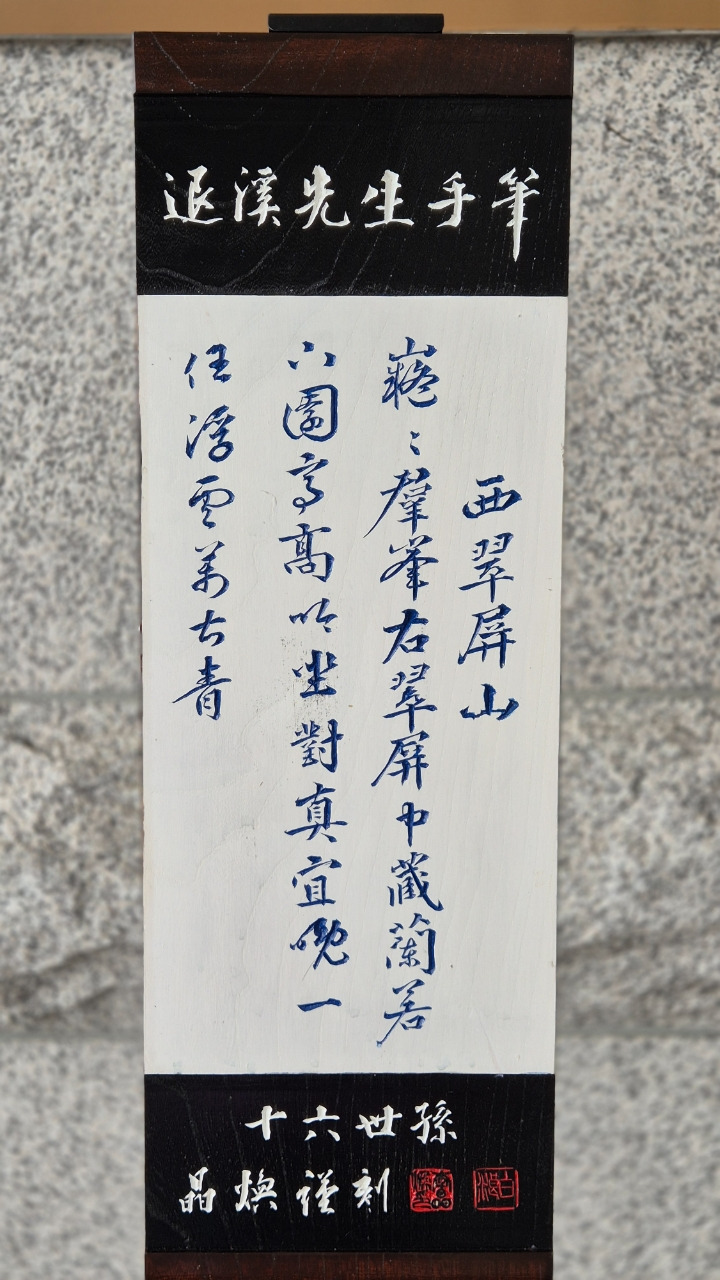 退溪先生手筆
西翠屏山
嶷〻羣峯右翠屏中藏蘭若
下園亭高吟坐對真宜晚一
任浮雲萬古青
十六世孫
晶煥謹刻